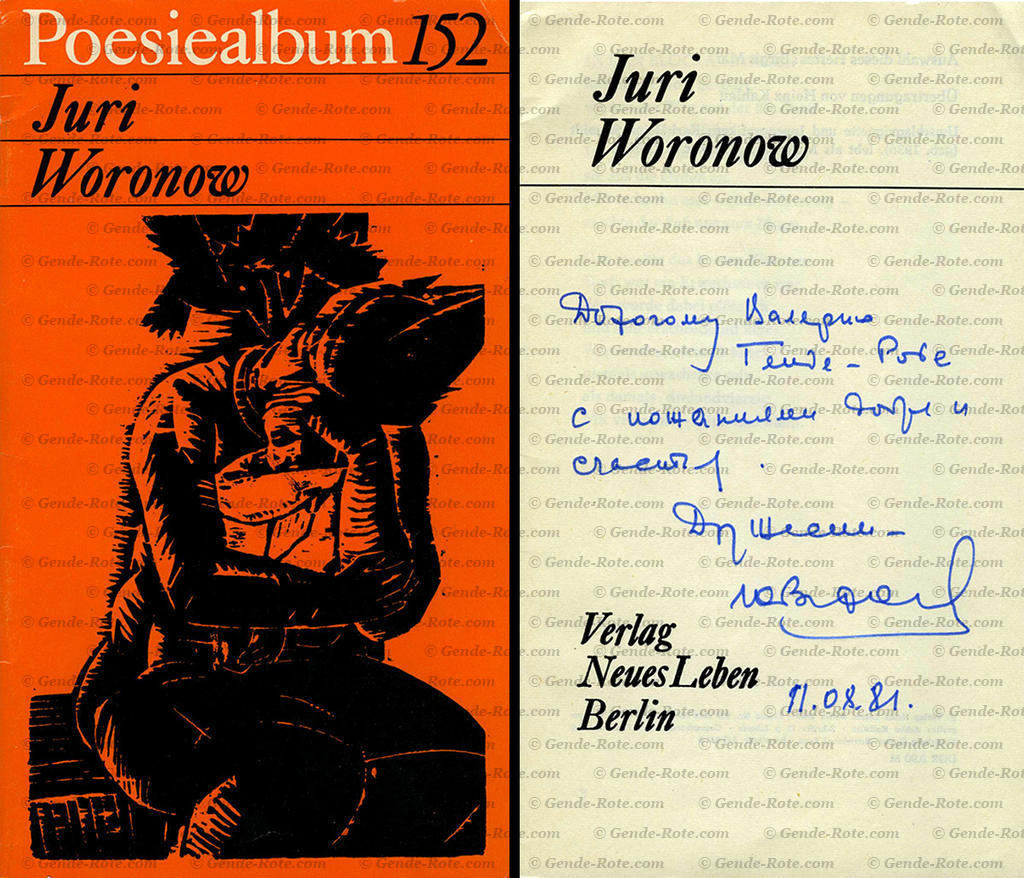 Poesiealbum 152
Juri
Woronow
Juri
Woronow
Дорогому Валерию
Генде-Роте
с пожеланиями добра и
счастья.
Дружески-
Verlag
Neues Leben
Berlin
11.08.81.
© Gende-Rote.com